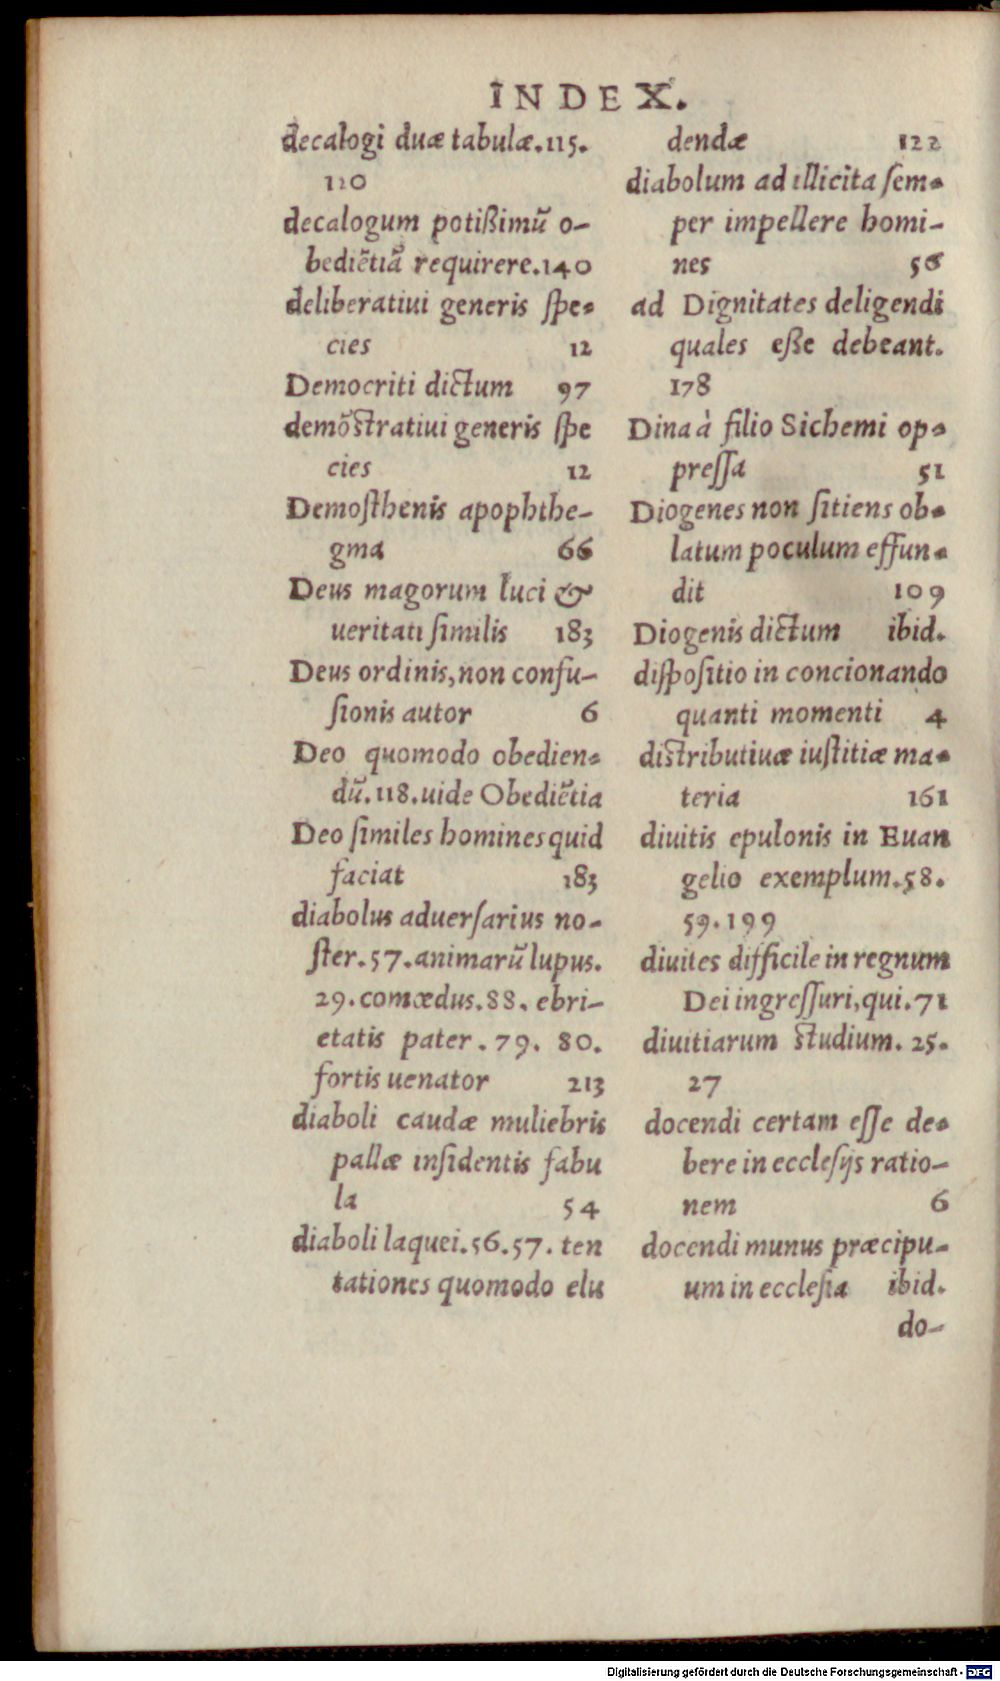 INDEX.
decalogi duæ tabulæ.115.
110
decalogum potißimũ o-
bediẽtiã requirere.140
deliberatiui generis ſpe-
cies 12
Democriti dictum 97
demõſtratiui generis ſpe
cies 12
Demoſthenis apophthe-
gma 66
Deus magorum luci &
ueritati ſimilis 183
Deus ordinis,non confu-
ſionis autor 6
Deo quomodo obedien-
dũ.118.uide Obediẽtia
Deo ſimiles homines quid
faciat 183
diabolus aduerſarius no-
ſter.57.animarũ lupus.
29.comœdus.88. ebri-
etatis pater.79. 80.
fortis uenator 213
diaboli caudæ muliebris
pallæ inſidentis fabu
la 54
diaboli laquei.56.57. ten
tationes quomodo elu
dendæ 122
diabolum ad illicita ſem-
per impellere homi-
nes 56
ad Dignitates deligendi
quales eße debeant.
178
Dina à filio Sichemi op-
preſſa 51
Diogenes non ſitiens ob-
latum poculum effun-
dit 109
Diogenis dictum ibid.
diſpoſitio in concionando
quanti momenti 4
diſtributiuæ iuſtitiæ ma-
teria 161
diuitis epulonis in Euan
gelio exemplum.58.
59.199
diuites difficile in regnum
Dei ingreſſuri,qui.71
diuitiarum ſtudium. 25.
27
docendi certam eſſe de-
bere in eccleſijs ratio-
nem 6
docendi munus præcipu-
um in eccleſia ibid.
do-
Digitalisierung gefördert durch die Deutsche Forschungsgemeinschaft - DFG